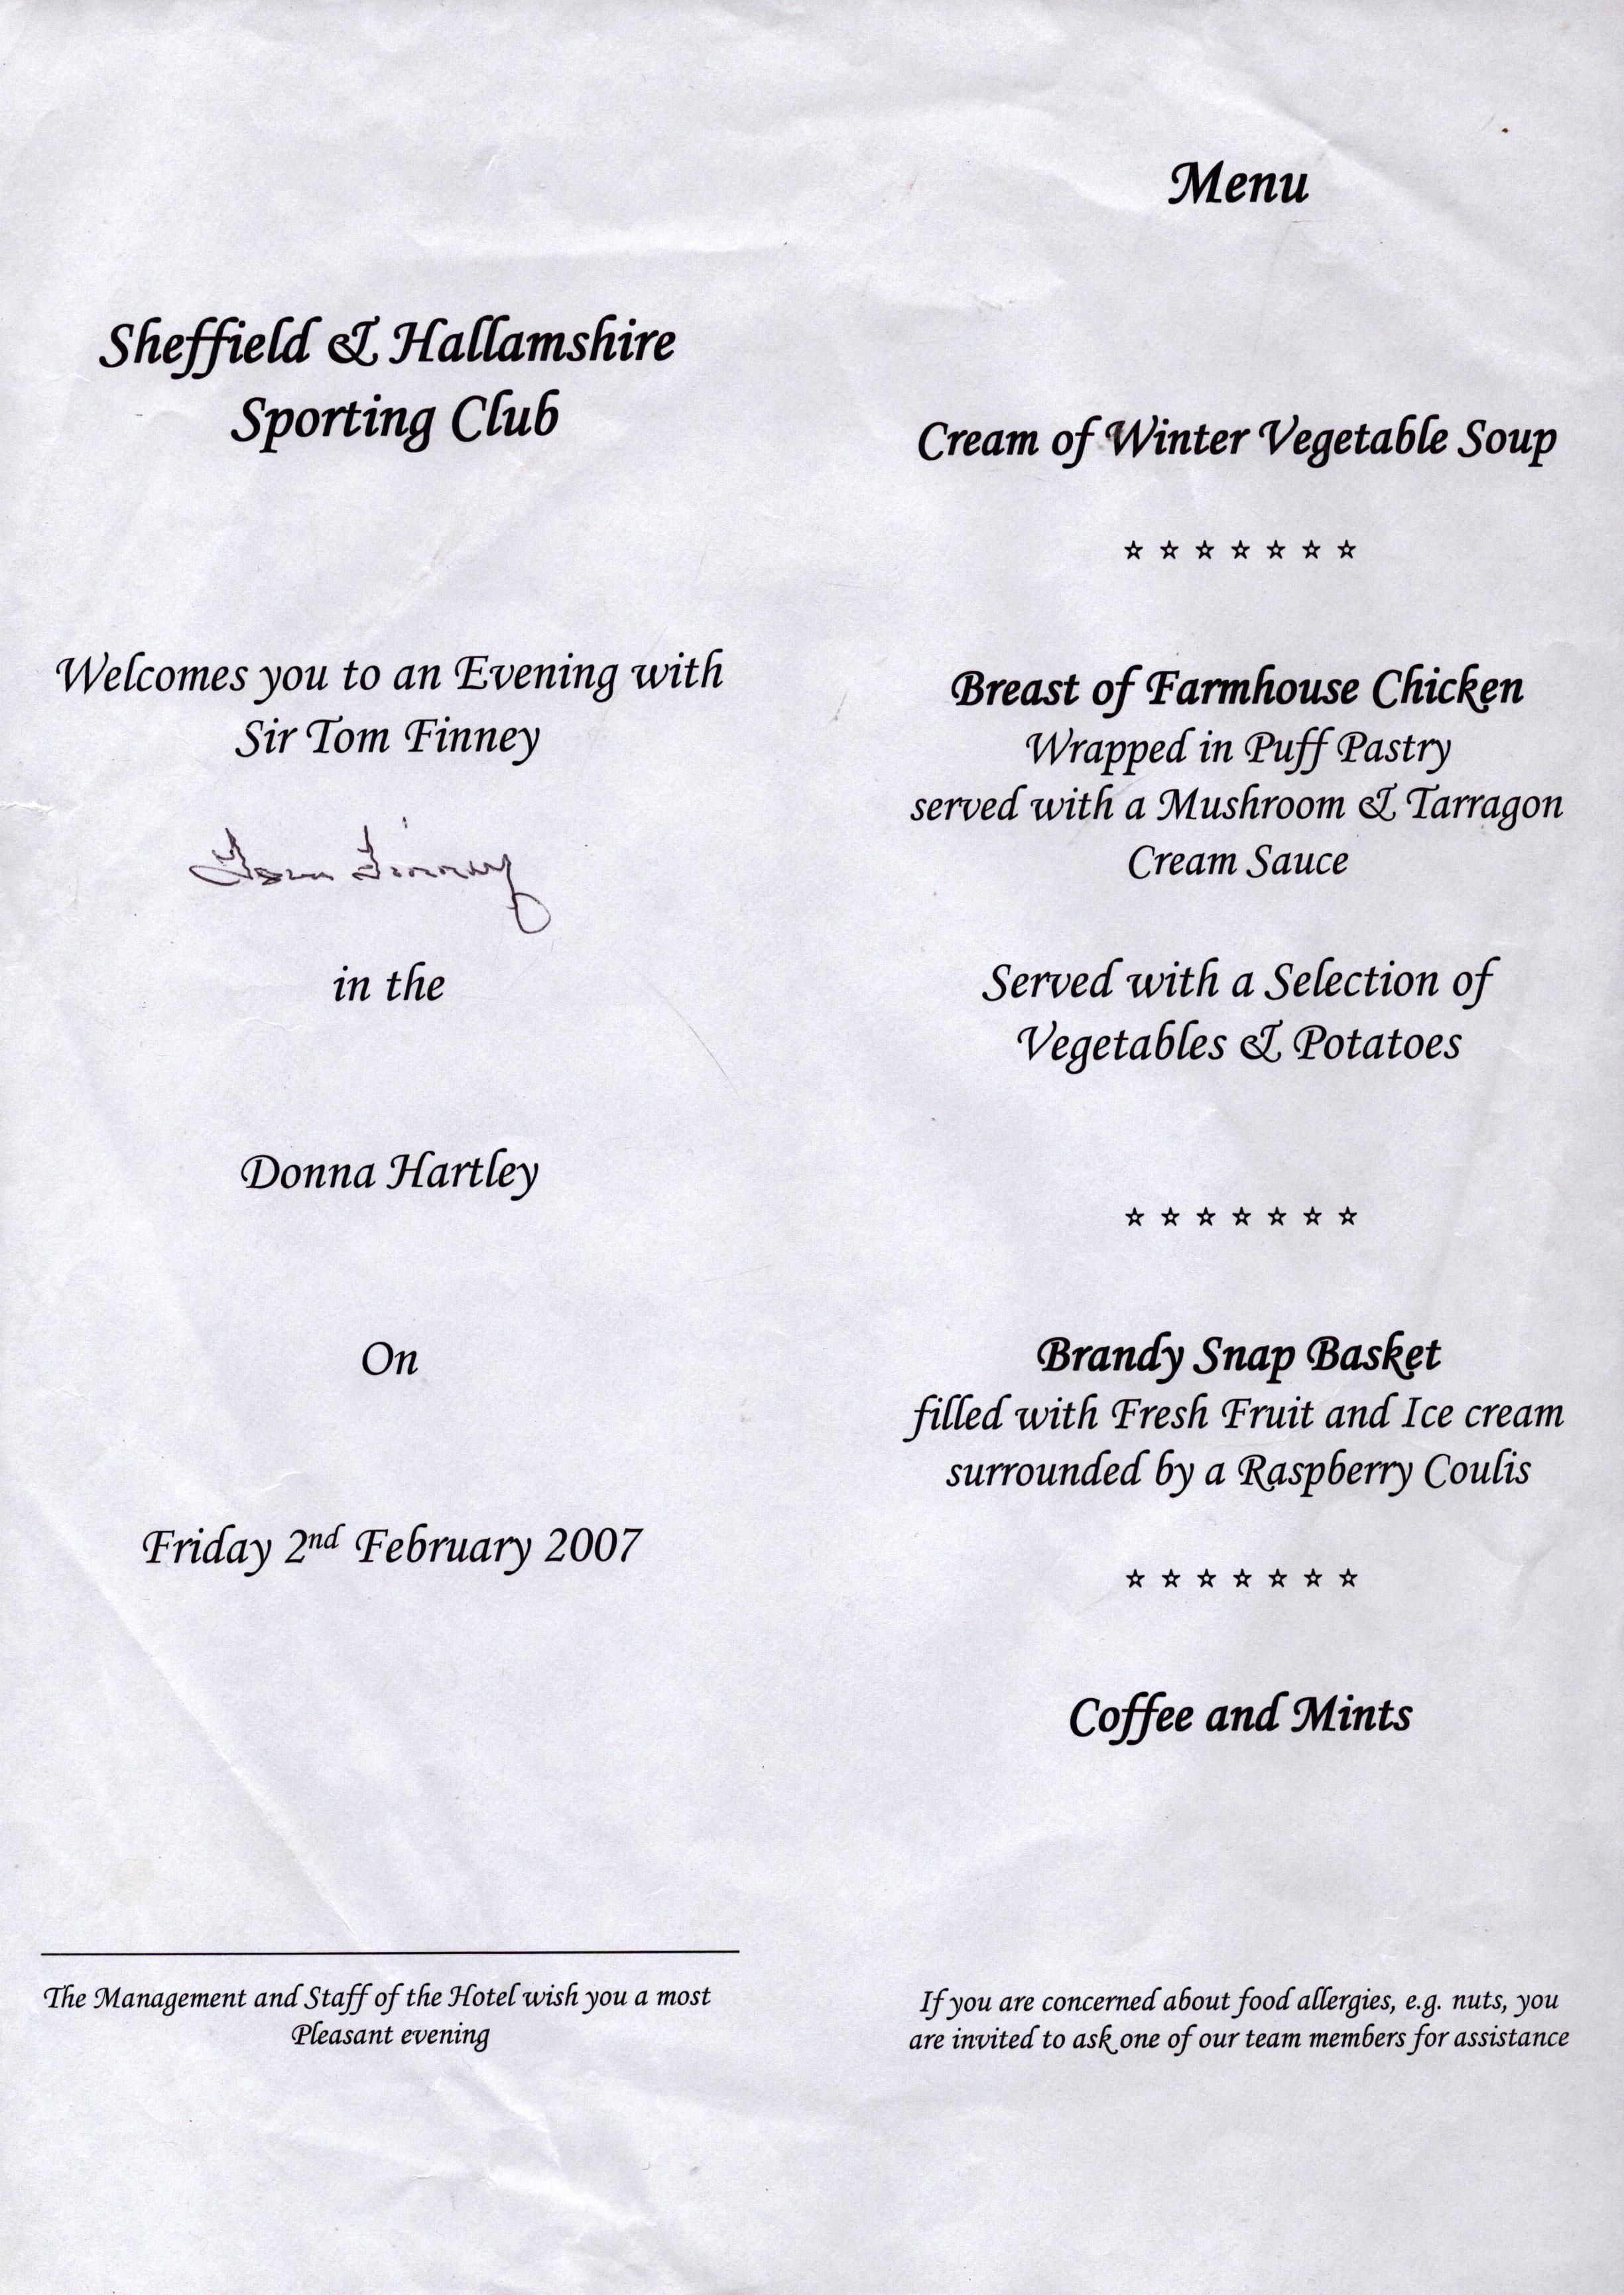 Sheffield & Hallamshire
Sporting Club
Welcomes you to an Evening with
Sir Tom Finney
Tom Finney
in the
Donna Hartley
On
Friday 2nd February 2007
The Management and Staff of the Hotel wish you a most
Pleasant evening
Menu
Cream of Winter Vegetable Soup
☆ ☆ ☆ ☆ ☆ ☆ ☆
Breast of Farmhouse Chicken
Wrapped in Puff Pastry
served with a Mushroom & Tarragon
Cream Sauce
Served with a Selection of
Vegetables & Potatoes
☆ ☆ ☆ ☆ ☆ ☆ ☆
Brandy Snap Basket
filled with Fresh Fruit and Ice cream
surrounded by a Raspberry Coulis
☆ ☆ ☆ ☆ ☆ ☆ ☆
Coffee and Mints
If you are concerned about food allergies, e.g. nuts, you
are invited to ask one of our team members for assistance